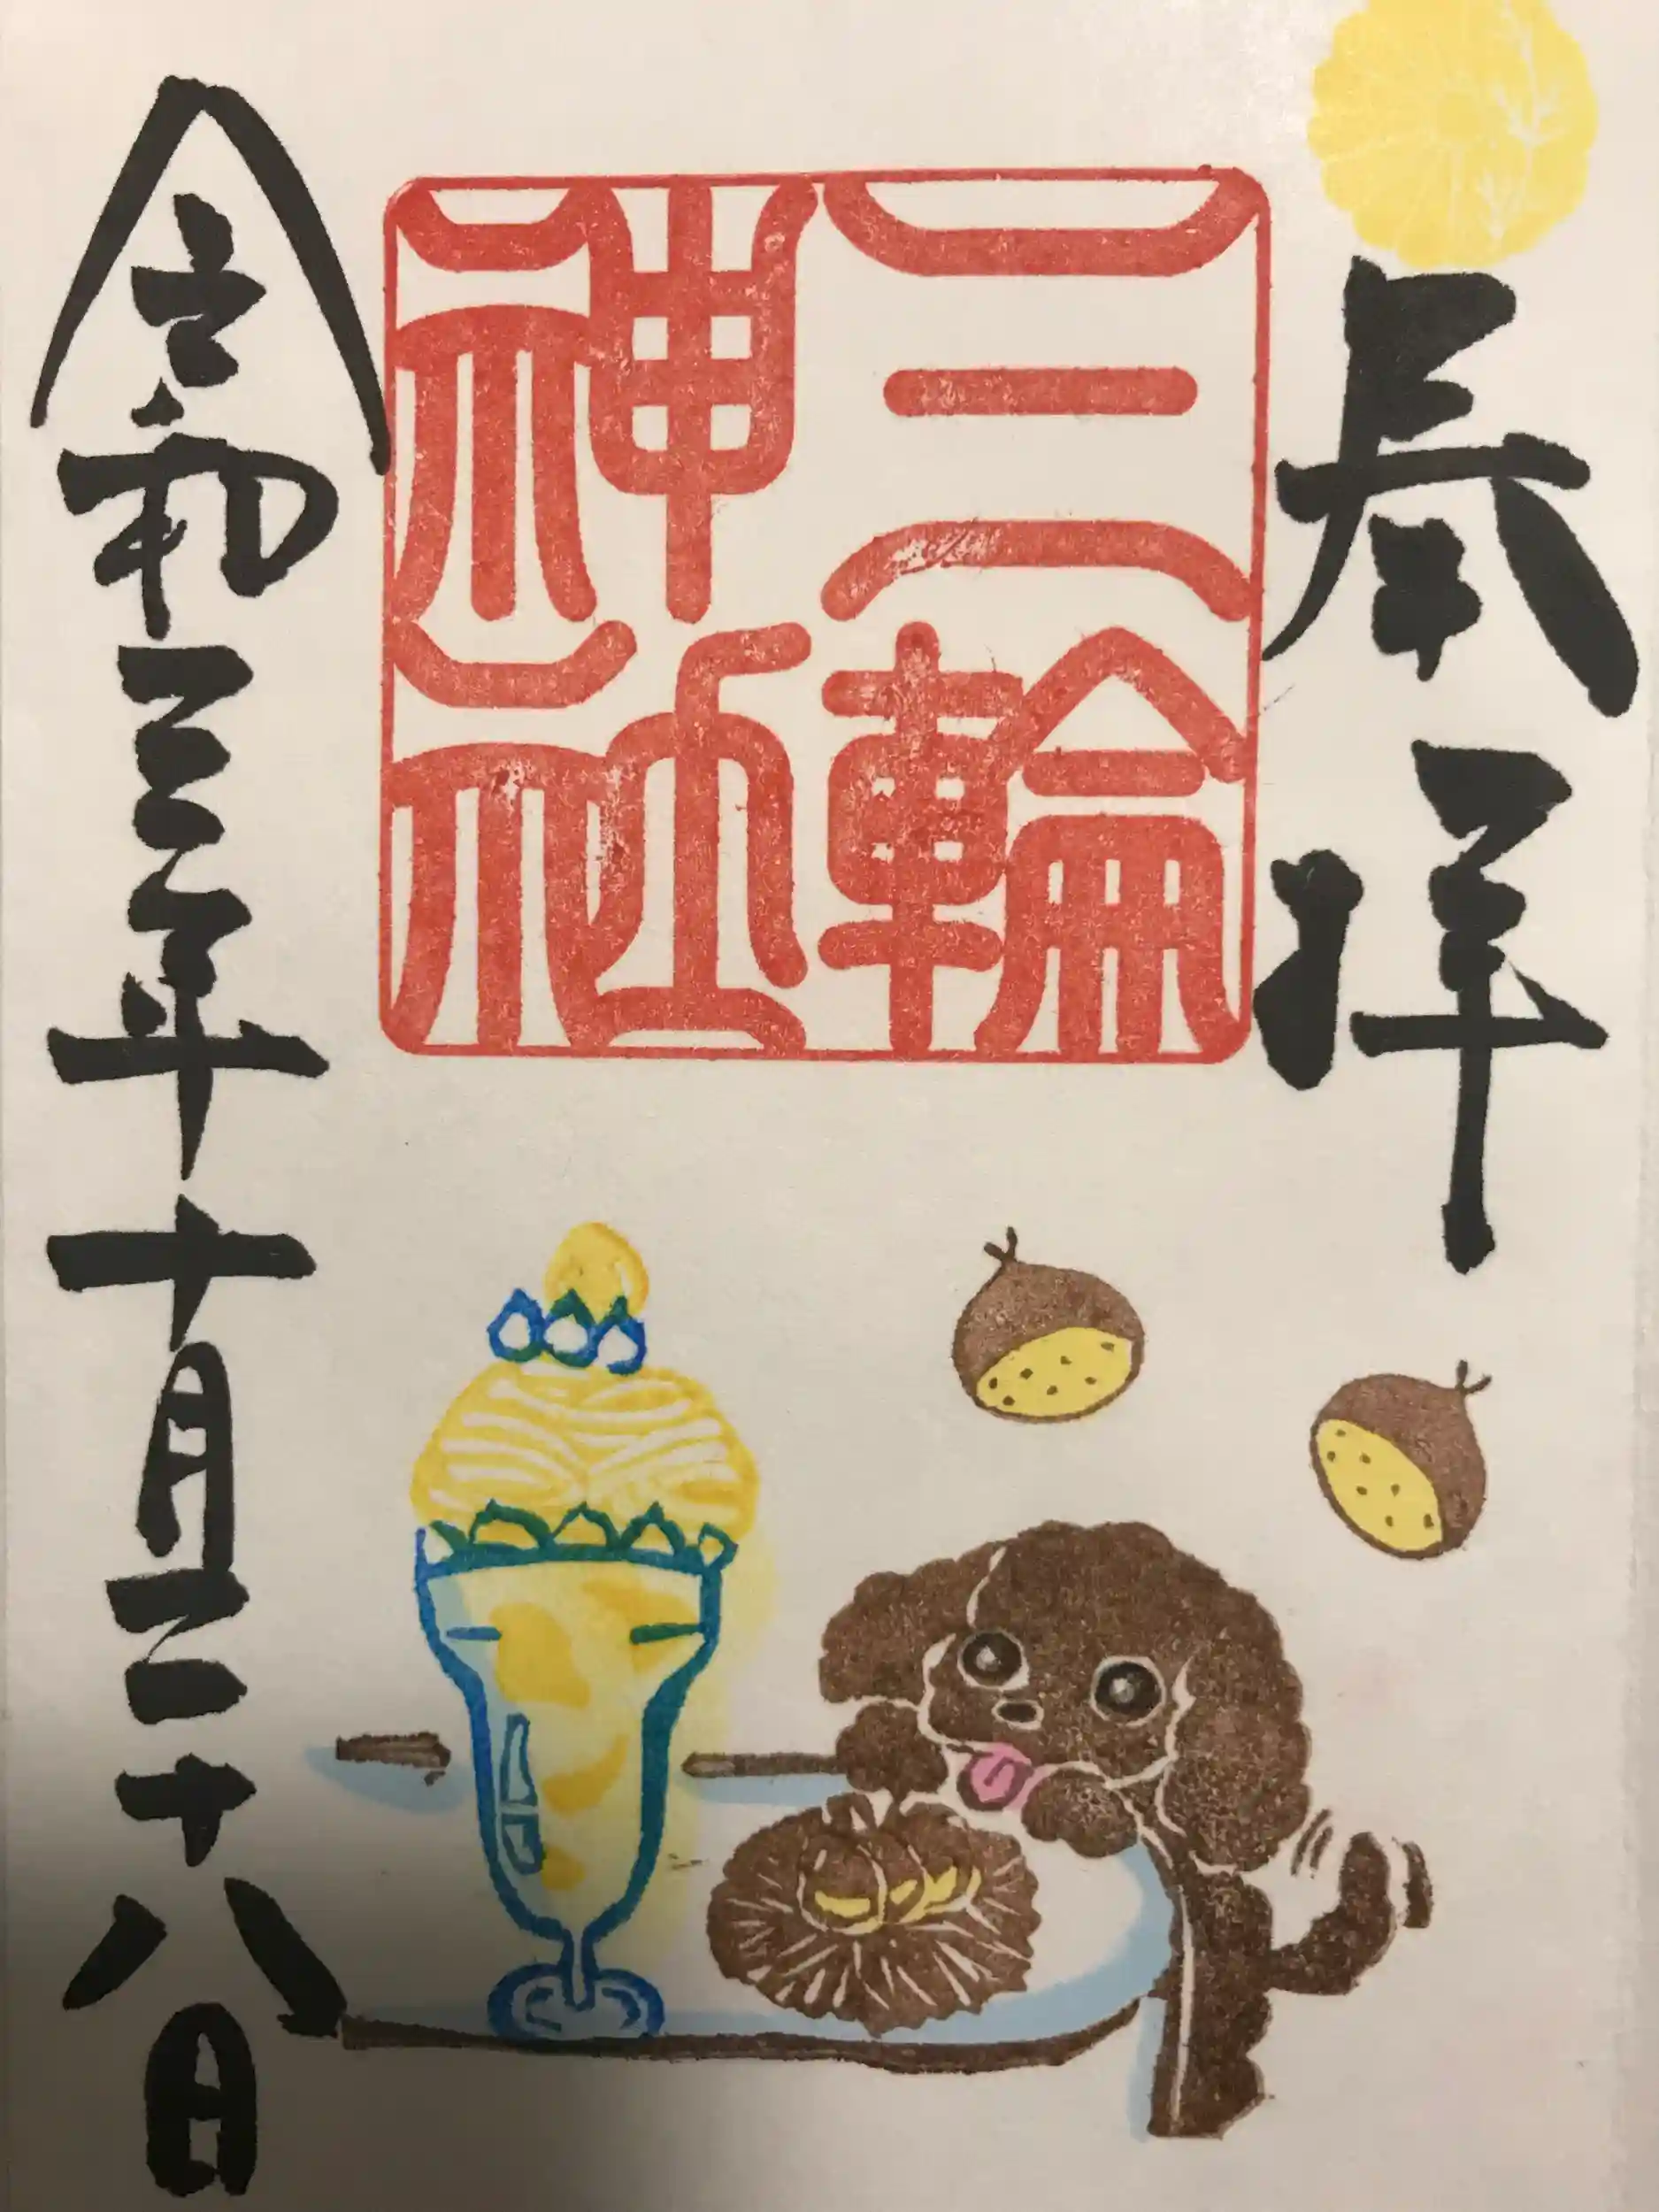 奉拝
三輪
神社
令和三年十月二十八日